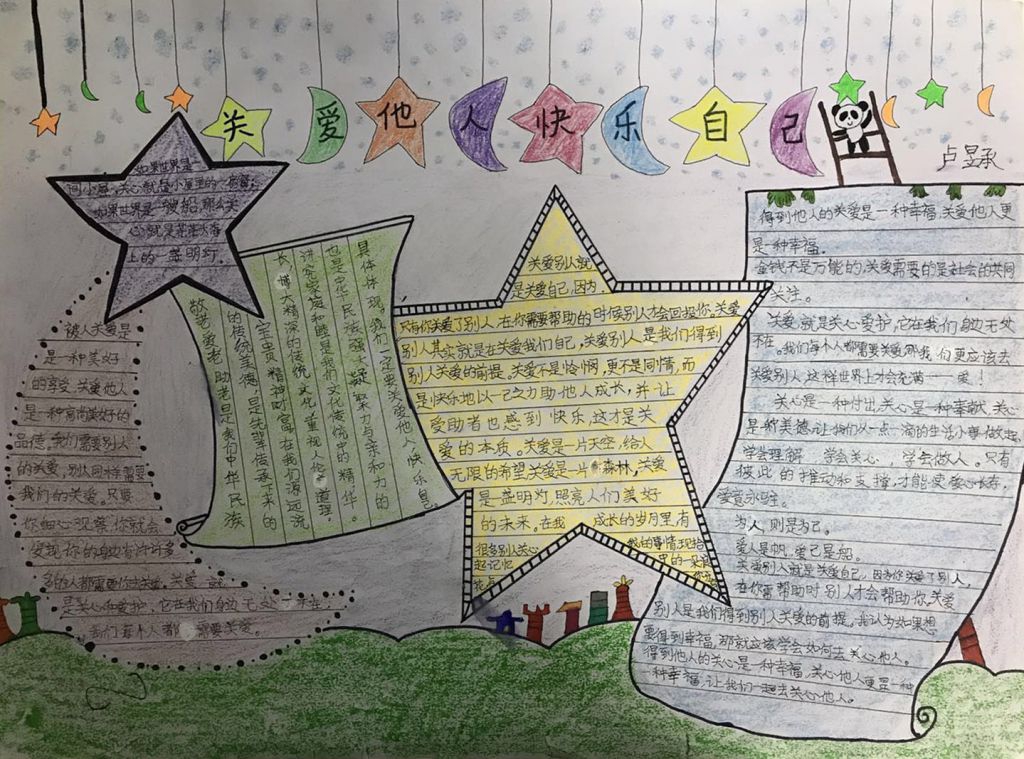 关爱他人快乐自己
卢昱承
如果世界是
间小屋,关心就是小屋里的一扇窗;
如果世界是一艘船,那么关
心就是茫茫大海
上的一盏明灯。
被人关爱是
是一种美好
的享受,关爱他人
是一种高尚美好的
品德。我们需要别人
的关爱,别人同样需要
我们的关爱。只要
你细心观察,你就会
发现,你的身边有许许多
多的人都需要你去关爱。关爱,就
是关心和爱护,它在我们身边无处不在
我们每个人都需要关爱。
敬老爱老助老是我们中华民族
的传统美德,是先辈传承下来的
宝贵精神财富,在我们源远流
长、博大精深的传统文化,重视人伦道理,
讲究家庭和睦是我们文化传统中的精华。
也是中华民族强大凝聚力与亲和力的
具体体现。我们一定要关爱他人快乐自己。
关爱别人就
是关爱自己,因为
只有你关爱了别人,在你需要帮助的时候别人才会回报你。关爱
别人其实就是在关爱我们自己,关爱别人是我们得到
别人关爱的前提。关爱不是怜悯,更不是同情,而
是快乐地以一己之力助他人成长,并让
受助者也感到快乐,这才是关
爱的本质。关爱是一片天空,给人
无限的希望,关爱是一片森林,关爱
是一盏明灯,照亮人们美好
的未来。在我 成长的岁月里,有
很多别人关心 我的事情,现拾
起记忆 中的一朵
得到他人的关爱是一种幸福,关爱他人更
是一种幸福.
金钱不是万能的,关爱需要的是社会的共同
关注。
关爱,就是关心爱护,它在我们身边无处
不在。我们每个人都需要关爱,我们更应该去
关爱别人,这样世界上才会充满——爱!
关心是一种付出,关心是一种奉献,关心
是一种美德,让我们从一点一滴的生活小事做起,
学会理解,学会关心,学会做人。只有
彼此的推动和支撑,才能使爱心长存,
爱意永驻。
为人,则是为己。
爱人是帆,爱己是船。
关爱别人就是关爱自己,因为你关爱了别人,
在你需帮助时别人才会帮助你,关爱
别人是我们得到别人关爱的前提。我认为如果想
要得到幸福,那就应该学会如何去关心他人。
得到他人的关心是一种幸福,关心他人更是一种
一种幸福,让我们一起去关心他人。